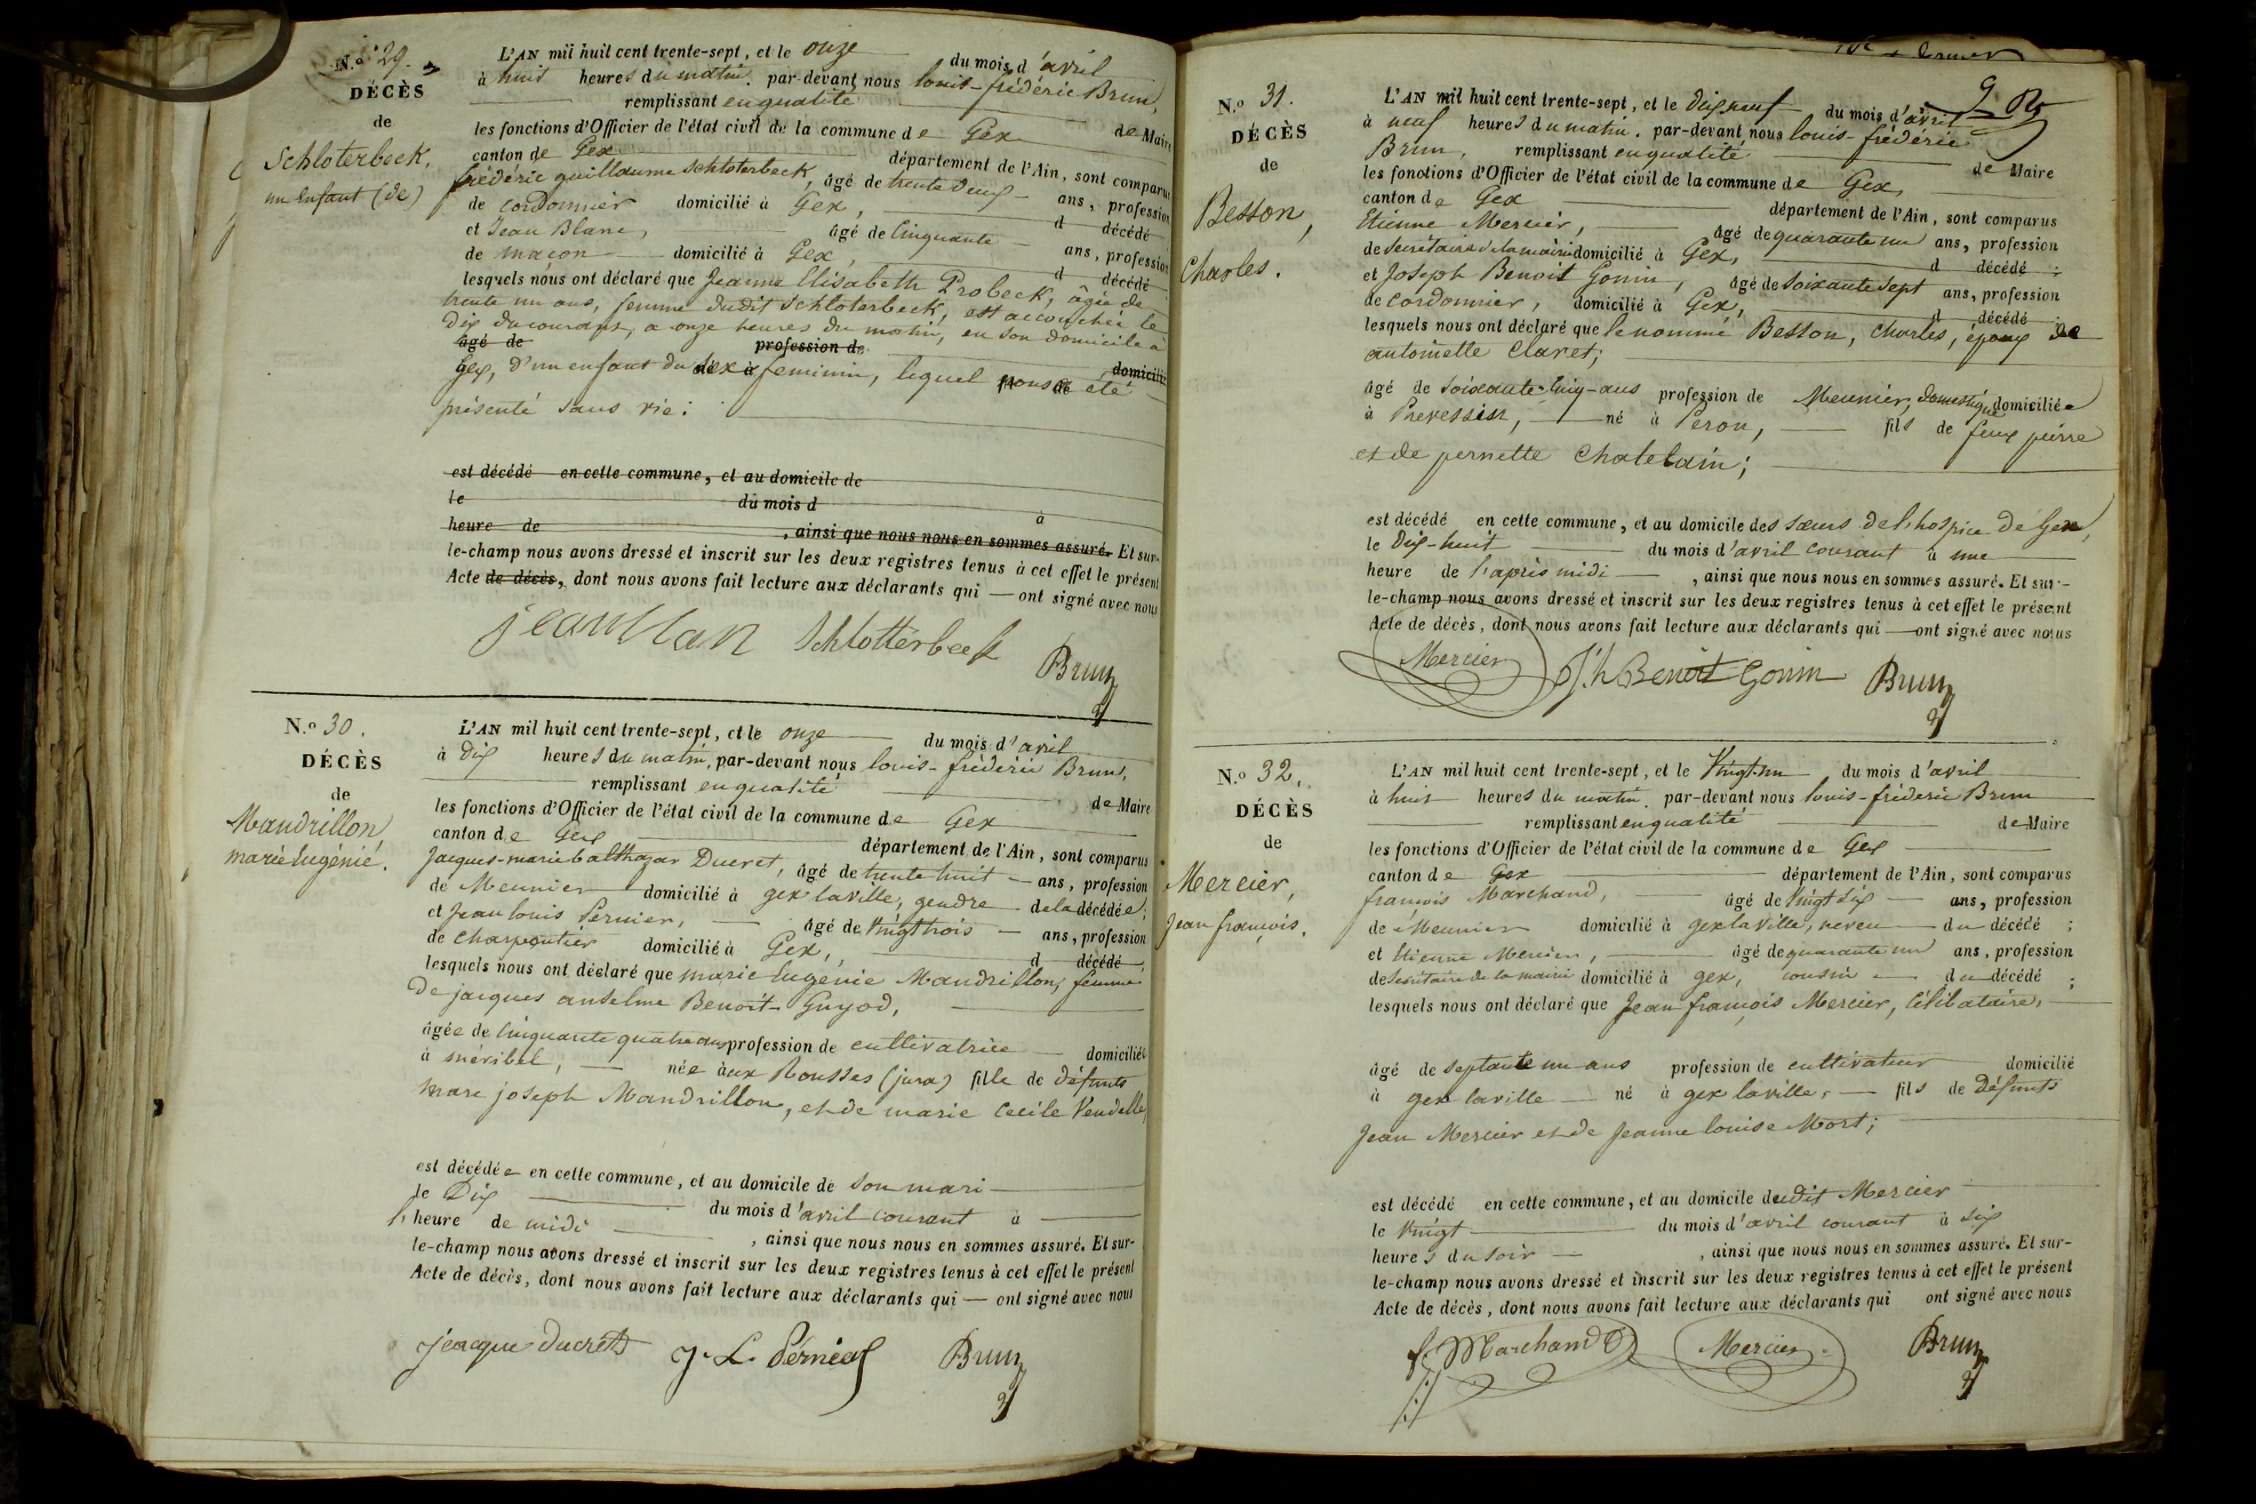 N.º 29.
DÉCÈS
de
Schloterbeck,
un Enfant (de)
L'AN mil huit cent trente-sept, et le onze du mois d'avril
à huit heures du matin. par-devant nous louis-frédéric Brun,
remplissant en qualité de Maire
les fonctions d'Officier de l'état civil de la commune de Gex
canton de Gex département de l'Ain, sont comparus
frédéric guillaume Schloterbeck, âgé de trente deux ans, profession
de cordonnier domicilié à Gex, d décédé
et Jean Blanc, âgé de Cinquante ans, profession
de maçon domicilié à Gex, d décédé
lesquels nous ont déclaré que Jeanne Elisabeth Probeck, âgée de
trente un ans, femme dudit Schloterbeck, est accouchée le
Dix du courant, a onze heures du matin, en son domicile à
âgé de profession de domicilié
Gex, d'un enfant du sexe feminin, lequel nous a été
présenté sans vie;
est décédé en cette commune, et au domicile de
le du mois d à
heure de , ainsi que nous nous en sommes assuré. Et sur-
le-champ nous avons dressé et inscrit sur les deux registres tenus à cet effet le présent
Acte de décès, dont nous avons fait lecture aux déclarants qui — ont signé avec nous
jean blan Schlotterbeck Brun
N.º 30.
DÉCÈS
de
Mandrillon
marie Eugénie.
L'AN mil huit cent trente-sept, et le onze du mois d'avril
à dix heures du matin, par-devant nous louis-frédéric Brun,
remplissant en qualité de Maire
les fonctions d'Officier de l'état civil de la commune de Gex
canton de Gex département de l'Ain, sont comparus
Jacques-marie balthazar Ducret, âgé de trente huit — ans, profession
de Meunier domicilié à gex laville, gendre de la décédée;
et Jean louis Pernier, âgé de Vingt trois — ans, profession
de charpentier domicilié à Gex, d décédé
lesquels nous ont déclaré que marie Eugénie Mandrillon, femme
de jacques anselme Benoit-Guyod,
âgée de Cinquante quatre ans profession de cultivatrice domiciliée
à méribel, née aux Rousses (jura) fille de défunts
marc joseph Mandrillon, et de marie Cecile Vandelle,
est décédée en cette commune, et au domicile de son mari
le Dix du mois d'avril courant à
l'heure de midi , ainsi que nous nous en sommes assuré. Et sur-
le-champ nous avons dressé et inscrit sur les deux registres tenus à cet effet le présent
Acte de décès, dont nous avons fait lecture aux déclarants qui — ont signé avec nous
jeacque ducret J. L. Perneas Brun
N.º 31.
DÉCÈS
de
Besson,
Charles.
L'AN mil huit cent trente-sept, et le dix neuf du mois d'avril
à neuf heures du matin. par-devant nous louis-frédéric
Brun, remplissant en qualité de Maire
les fonctions d'Officier de l'état civil de la commune de Gex,
canton de Gex département de l'Ain, sont comparus
Etienne Mercier, âgé de quarante un ans, profession
de Secrétaire de la mairie domicilié à Gex, d décédé;
et Joseph Benoit Gonin, âgé de Soixante Sept ans, profession
de cordonnier, domicilié à Gex, d décédé;
lesquels nous ont déclaré que le nommé Besson, Charles, époux de
antoinette Claret;
âgé de soixante-Cinq-ans profession de Meunier, domestique domicilié
à Prevessin, né à Peron, fils de feux pierre
et de pernette Chatelain;
est décédé en cette commune, et au domicile des sœurs de l'hospice de Gex,
le Dix-huit du mois d'avril courant à une
heure de l'après midi — , ainsi que nous nous en sommes assuré. Et sur-
le-champ nous avons dressé et inscrit sur les deux registres tenus à cet effet le présent
Acte de décès, dont nous avons fait lecture aux déclarants qui — ont signé avec nous
Mercier J.h Benoit Gonin Brun
N.º 32.
DÉCÈS
de
Mercier,
Jean françois.
L'AN mil huit cent trente-sept, et le Vingt-un du mois d'avril
à huit heures du matin. par-devant nous louis-fréderic Brun
remplissant en qualité de Maire
les fonctions d'Officier de l'état civil de la commune de Gex
canton de Gex département de l'Ain, sont comparus
françois Marchand, âgé de Vingt Six ans, profession
de Meunier domicilié à gex la Ville, neveu du décédé;
et Etienne Mercier, âgé de quarante un ans, profession
de Secrétaire de la mairie domicilié à gex, cousin du décédé;
lesquels nous ont déclaré que Jean françois Mercier, Célibataire,
âgé de septante un ans profession de cultivateur domicilié
à gex laville né à gex laville, fils de Défunts
Jean Mercier et de Jeanne louise Mort;
est décédé en cette commune, et au domicile dudit Mercier
le Vingt du mois d'avril courant à six
heures du soir , ainsi que nous nous en sommes assuré. Et sur-
le-champ nous avons dressé et inscrit sur les deux registres tenus à cet effet le présent
Acte de décès, dont nous avons fait lecture aux déclarants qui ont signé avec nous
f. Marchand Mercier Brun